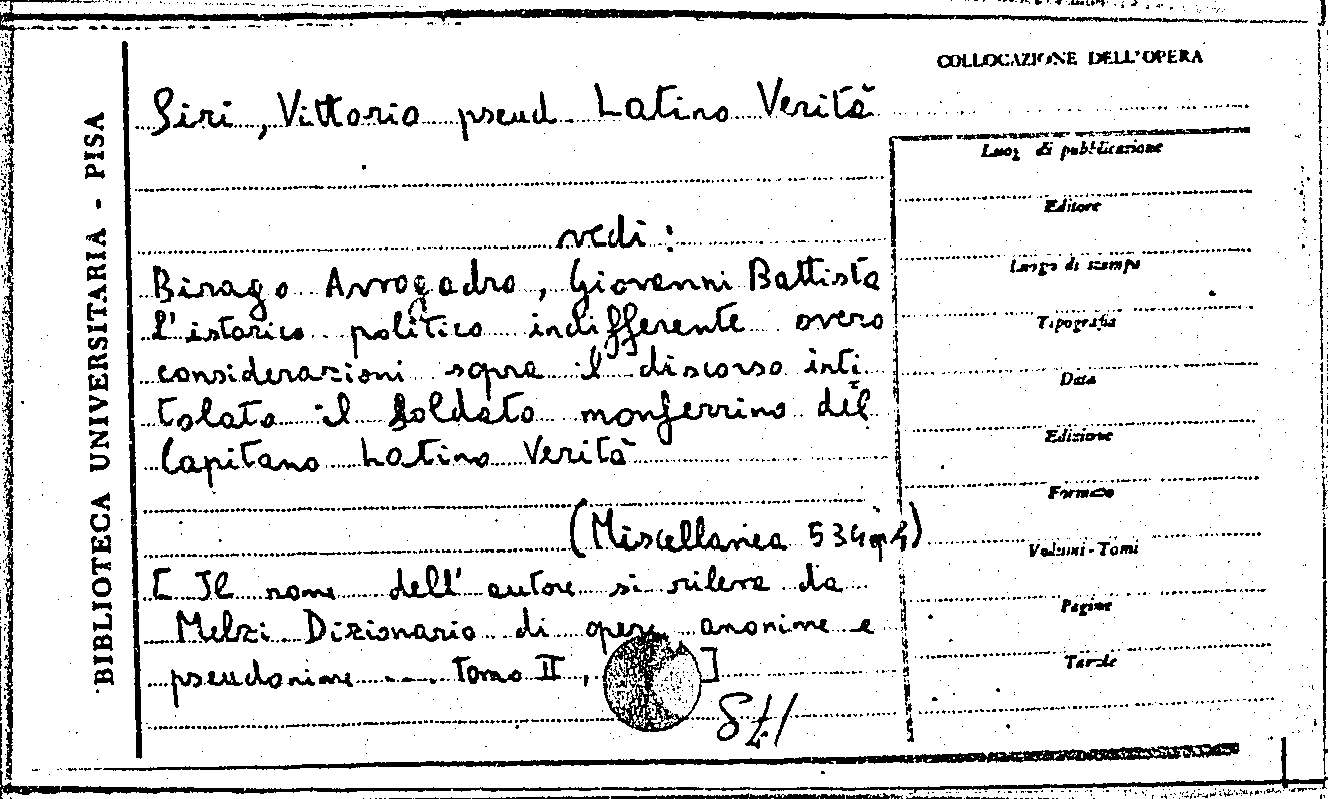 COLLOCAZIONE DELL'OPERA
BIBLIOTECA UNIVERSITARIA - PISA
Siri, Vittorio pseud. Latino Verità
vedi:
Birago Avvogadro, Giovanni Battista
l'istorico politico indifferente overo
considerazioni sopra il discorso inti
tolato il Soldato monferrino del
Capitano Latino Verità
(Miscellanea 534
[Il nome dell'autore si rileva da
Melzi Dizionario di opere anonime e
pseudonime .... Tomo II, ]
Luogo di pubblicazione
Editore
Luogo di stampa
Tipografia
Data
Edizione
Formato
Volumi-Tomi
Pagine
Tavole